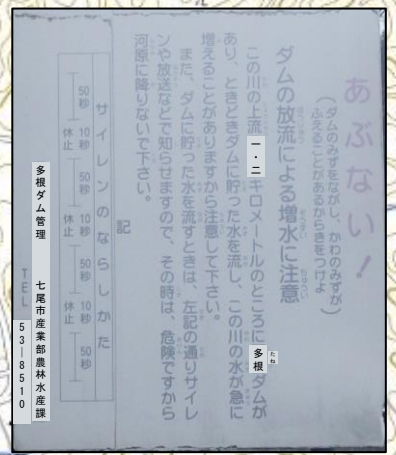 あぶない!
(ダムのみずをながし、かわのみずが
ふえることがあるからきをつけよ)
ダムの放流による増水に注意
この川の上流一・二キロメートルのところに多根ダムが
あり、ときどきダムに貯った水を流し、この川の水が急に
増えることがありますから注意して下さい。
また、ダムに貯った水を流すときは、左記の通りサイレ
ンや放送などで知らせますので、その時は、危険ですから
河原に降りないで下さい。
記
サイレンのならしかた
50秒 10秒休止 50秒 10秒休止 50秒 10秒休止 50秒
多根ダム管理 七尾市産業部農林水産課
TEL 53-8510